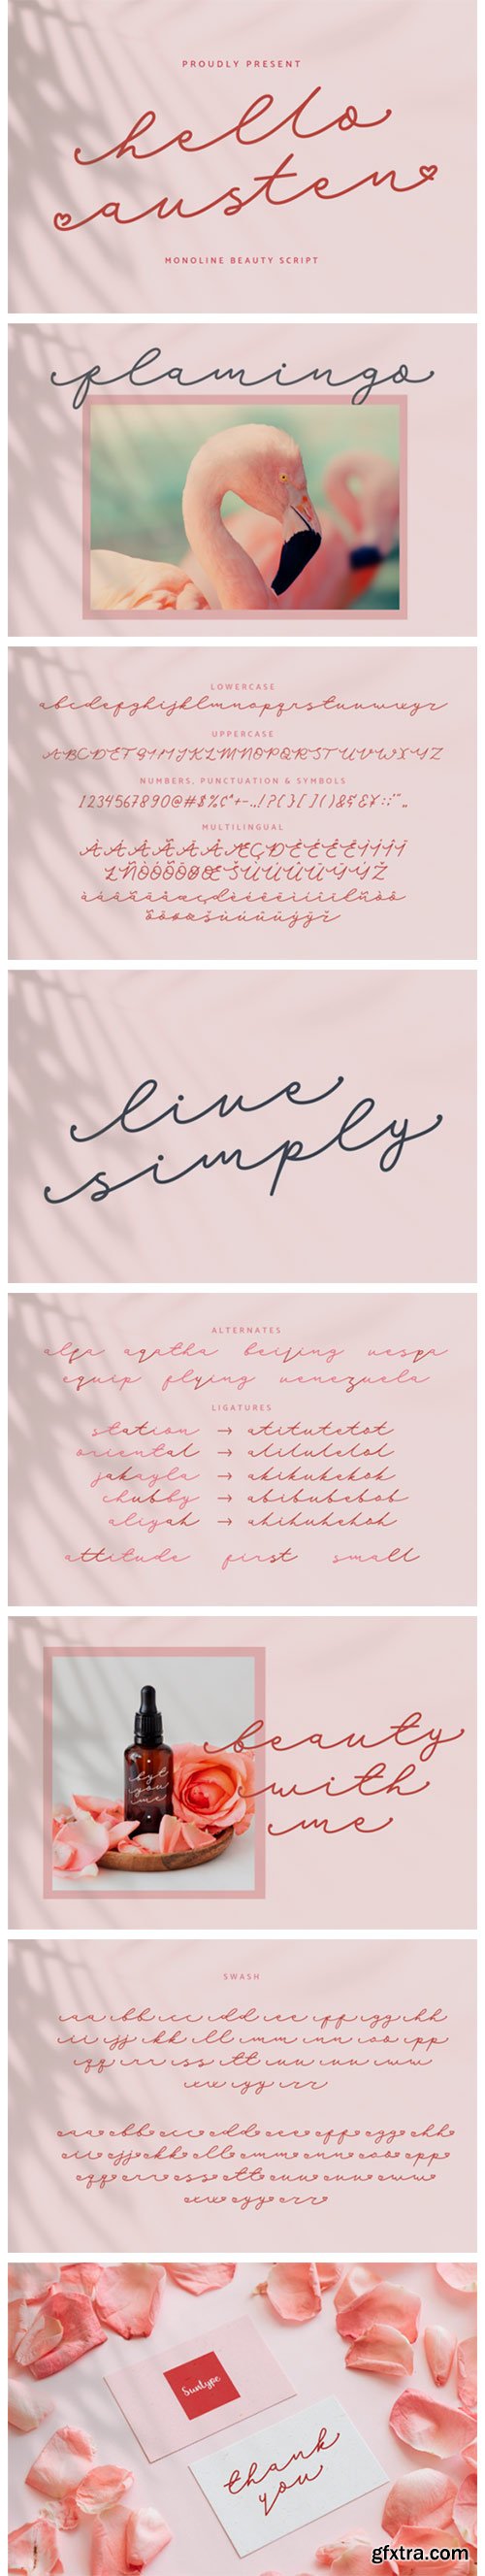 PROUDLY PRESENT
hello
austen
MONOLINE BEAUTY SCRIPT
flamingo
LOWERCASE
abcdefghijklmnopqrstuvwxyz
UPPERCASE
ABCDEFGHIJKLMNOPQRSTUVWXYZ
NUMBERS, PUNCTUATION & SYMBOLS
MULTILINGUAL
live
simply
ALTERNATES
alfa agatha beijing vespa
equip flying venezuela
LIGATURES
station → atitutetot
oriental → alilulelol
jakayla → akikukekok
chubby → abibubebob
aliyah → ahihuhehoh
attitude first small
beauty
with
me
bye
you
me
SWASH
aa bb cc dd ee ff gg hh
ii jj kk ll mm nn oo pp
qq rr ss tt uu vv ww
xx yy zz
aa bb cc dd ee ff gg hh
ii jj kk ll mm nn oo pp
qq rr ss tt uu vv ww
xx yy zz
Suntype
thank
you
gfxtra.com